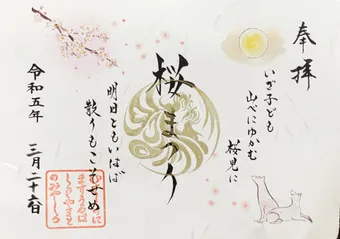 奉拝
いざ子ども
山べにゆかむ
桜見に
桜まつり
明日ともいはば
散りもこそせめ
令和五年 三月二十六日